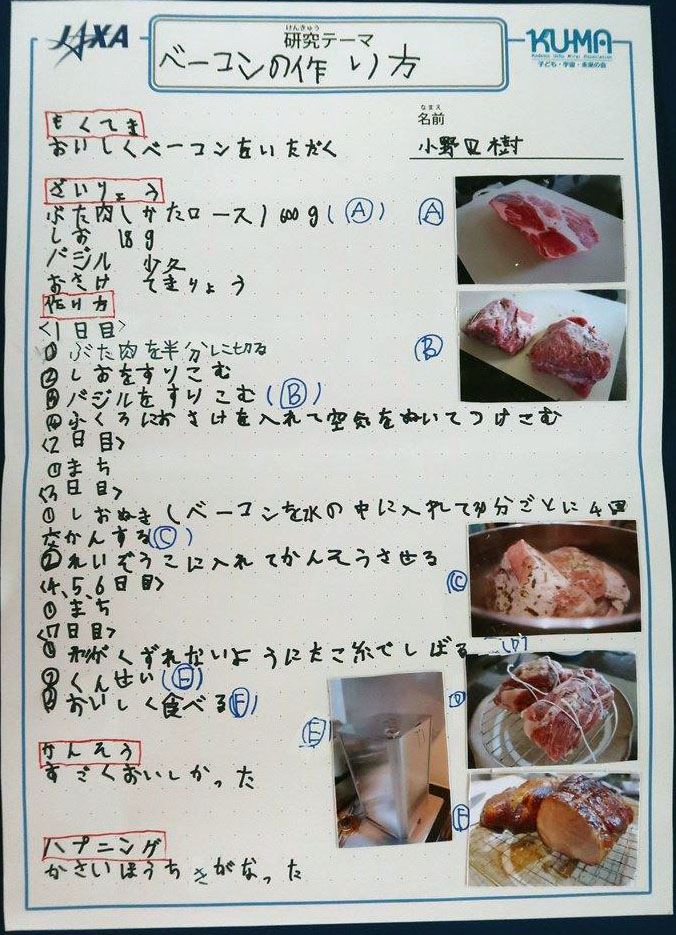 JAXA
けんきゅう
研究テーマ
ベーコンの作り方
KU-MA
Kodomo Uchu Mirai Association
子ども・宇宙・未来の会
もくてき
おいしくベーコンをいただく
なまえ
名前
小野 樹
ざいりょう
ぶた肉(かたロース)600g(A)
A
しお 18g
バジル 少々
おさけ てきりょう
作り方
<1日目>
① ぶた肉を半分に切る
B
② しおをすりこむ
③ バジルをすりこむ(B)
④ ふくろにおさけを入れて空気をぬいてつけこむ
<2日目>
① まち
<3日目>
① しおぬき(ベーコンを水の中に入れて30分ごとに4回
かんする(C)
② れいぞうこに入れてかんそうさせる
C
<4、5、6日目>
① まち
<7日目>
① 形がくずれないようにたこ糸でしばる(D)
② くんせい(E)
D
③ おいしく食べる(F)
E
かんそう
すごくおいしかった
F
ハプニング
かさいほうちきがなった